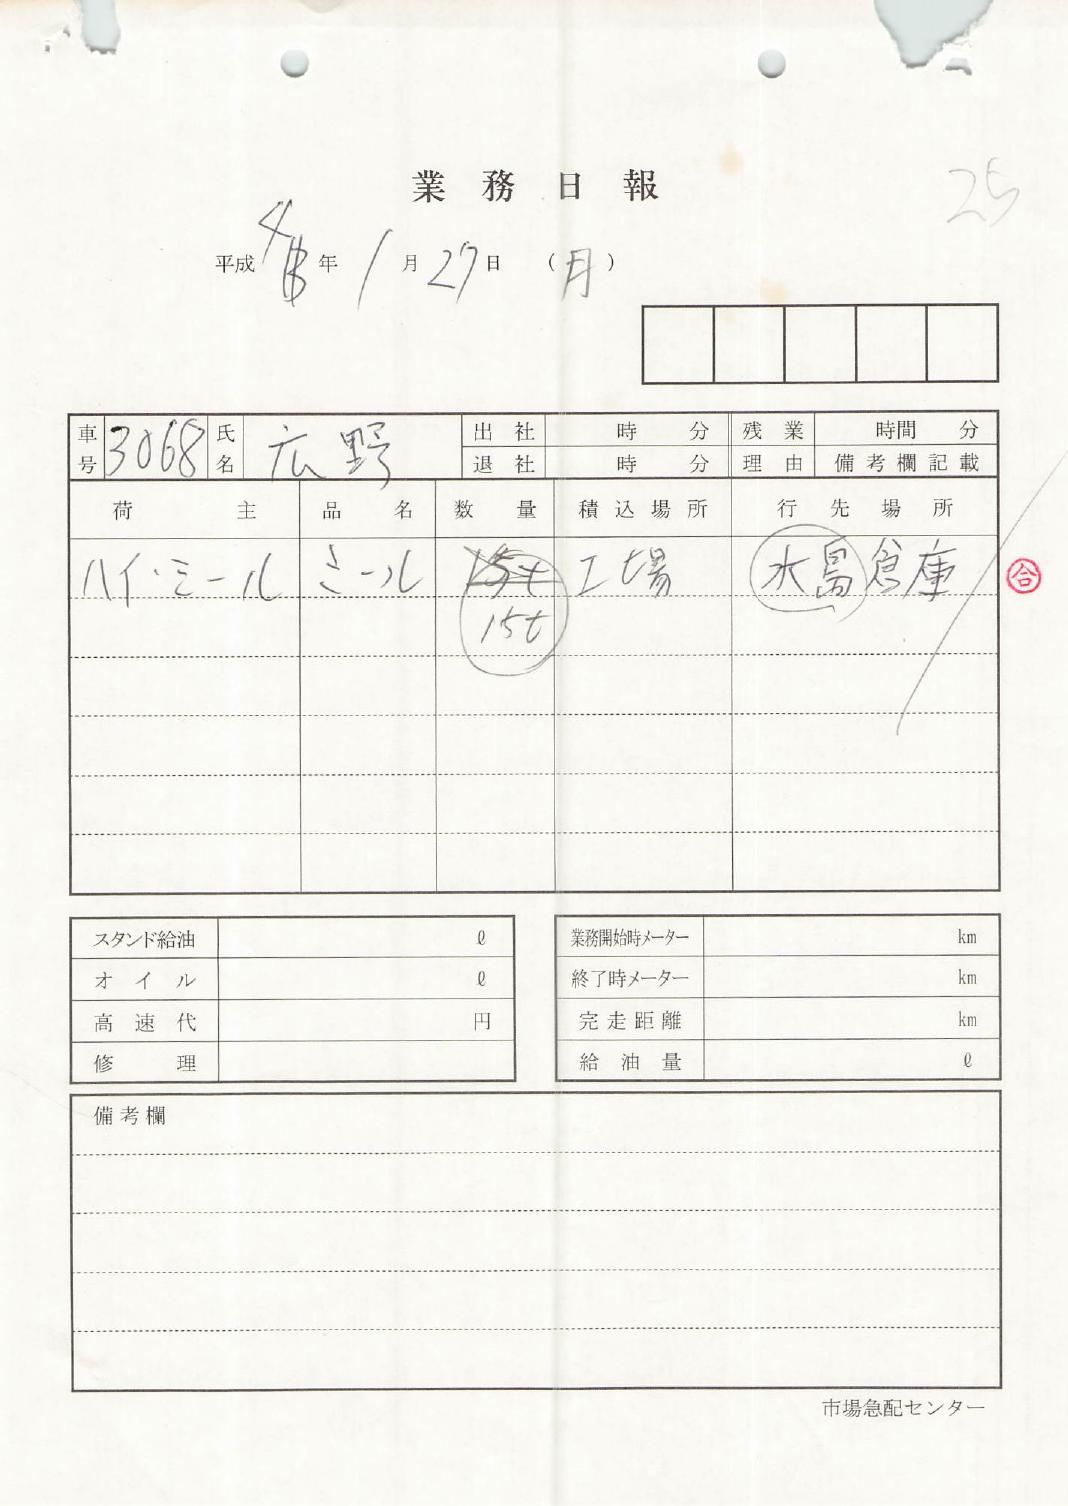 業務日報
25
平成 4 年 1 月 27 日 (月)
車号 3068 氏名 広野 出社 時 分 残業 時間 分
退社 時 分 理由 備考欄記載
荷主 品名 数量 積込場所 行先場所
ハイ・ミール ミール 15t 工場 水島倉庫 合
15t
スタンド給油 ℓ 業務開始時メーター km
オイル ℓ 終了時メーター km
高速代 円 完走距離 km
修理 給油量 ℓ
備考欄
市場急配センター